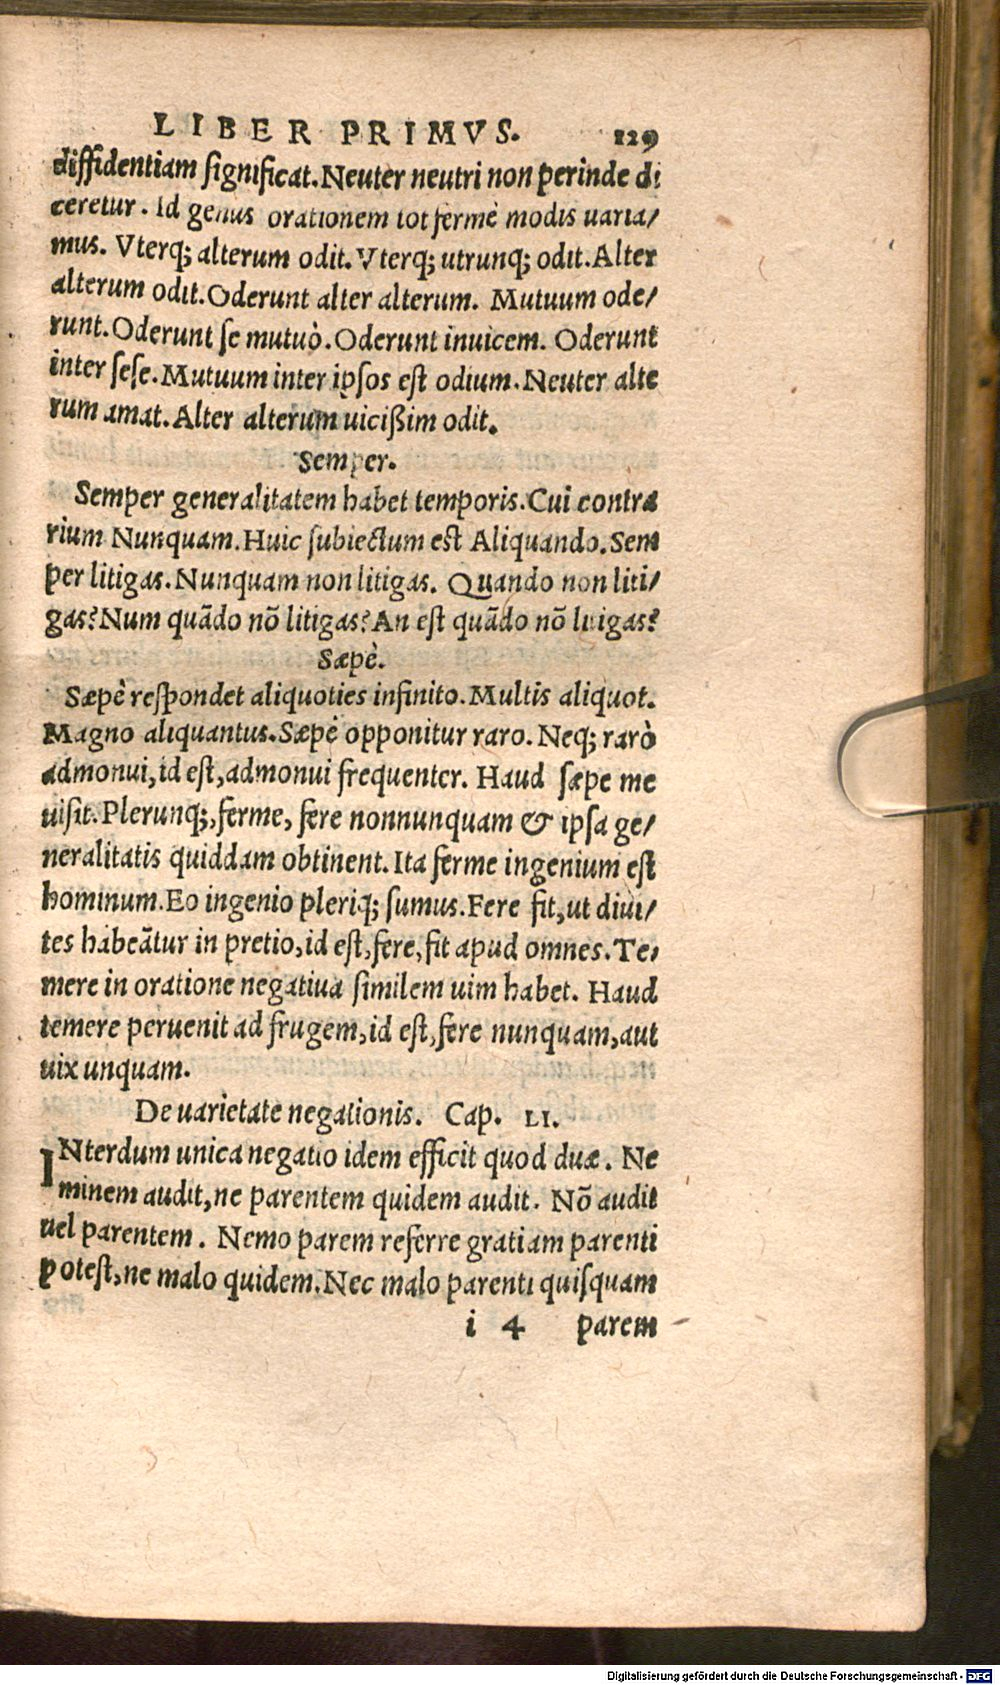 LIBER PRIMVS. 129
diffidentiam significat. Neuter neutri non perinde di
ceretur. Id genus orationem tot fermè modis uaria/
mus. Vterq; alterum odit. Vterq; utrunq; odit. Alter
alterum odit. Oderunt alter alterum. Mutuum ode/
runt. Oderunt se mutuò. Oderunt inuicem. Oderunt
inter sese. Mutuum inter ipsos est odium. Neuter alte
rum amat. Alter alterum uicißim odit.
Semper.
Semper generalitatem habet temporis. Cui contra
rium Nunquam. Huic subiectum est Aliquando. Sem
per litigas. Nunquam non litigas. Quando non liti/
gas? Num quãdo nõ litigas? An est quãdo nõ litigas?
Sæpè.
Sæpè respondet aliquoties infinito. Multis aliquot.
Magno aliquantus. Sæpè opponitur raro. Neq; rarò
admonui, id est, admonui frequenter. Haud sæpe me
uisit. Plerunq;, ferme, fere nonnunquam & ipsa ge/
neralitatis quiddam obtinent. Ita ferme ingenium est
hominum. Eo ingenio pleriq; sumus. Fere fit, ut diui/
tes habeãtur in pretio, id est, fere, fit apud omnes. Te/
mere in oratione negatiua similem uim habet. Haud
temere peruenit ad frugem, id est, fere nunquam, aut
uix unquam.
De uarietate negationis. Cap. LI.
INterdum unica negatio idem efficit quod duæ. Ne
minem audit, ne parentem quidem audit. Nõ audit
uel parentem. Nemo parem referre gratiam parenti
potest, ne malo quidem. Nec malo parenti quisquam
i 4 parem
Digitalisierung gefördert durch die Deutsche Forschungsgemeinschaft - DFG